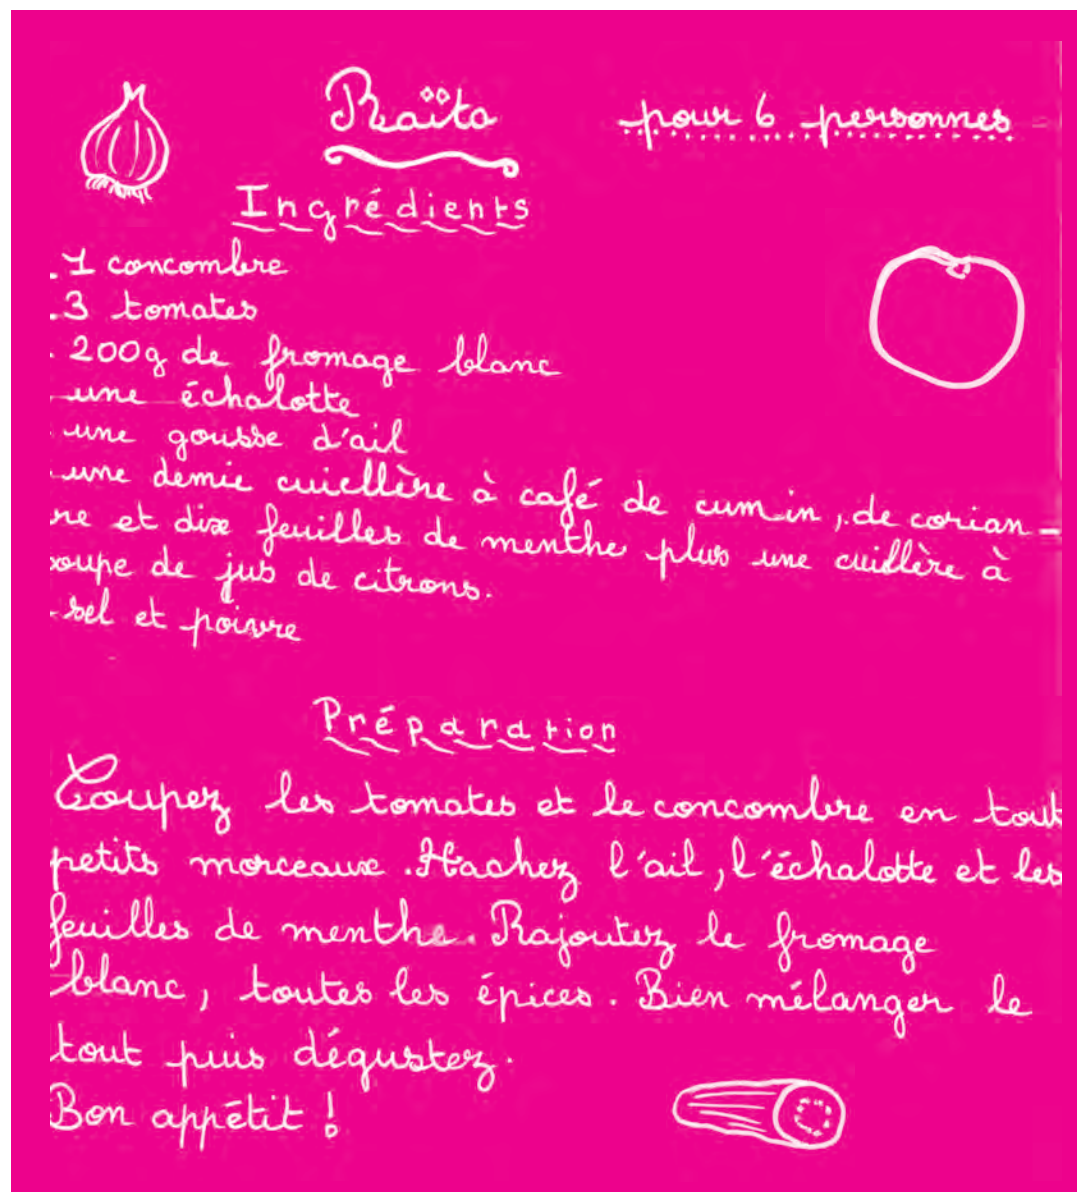 Raïta
pour 6 personnes
Ingrédients
. 1 concombre
. 3 tomates
. 200g de fromage blanc
. une échalotte
. une gousse d'ail
. une demie cuiellère à café de cumin, de corian-
re et dix feuilles de menthe plus une cuillère à
soupe de jus de citrons.
. sel et poivre
Préparation
Coupez les tomates et le concombre en tout
petits morceaux. Hachez l'ail, l'échalotte et les
feuilles de menthe. Rajoutez le fromage
blanc, toutes les épices. Bien mélanger le
tout puis dégustez.
Bon appétit !